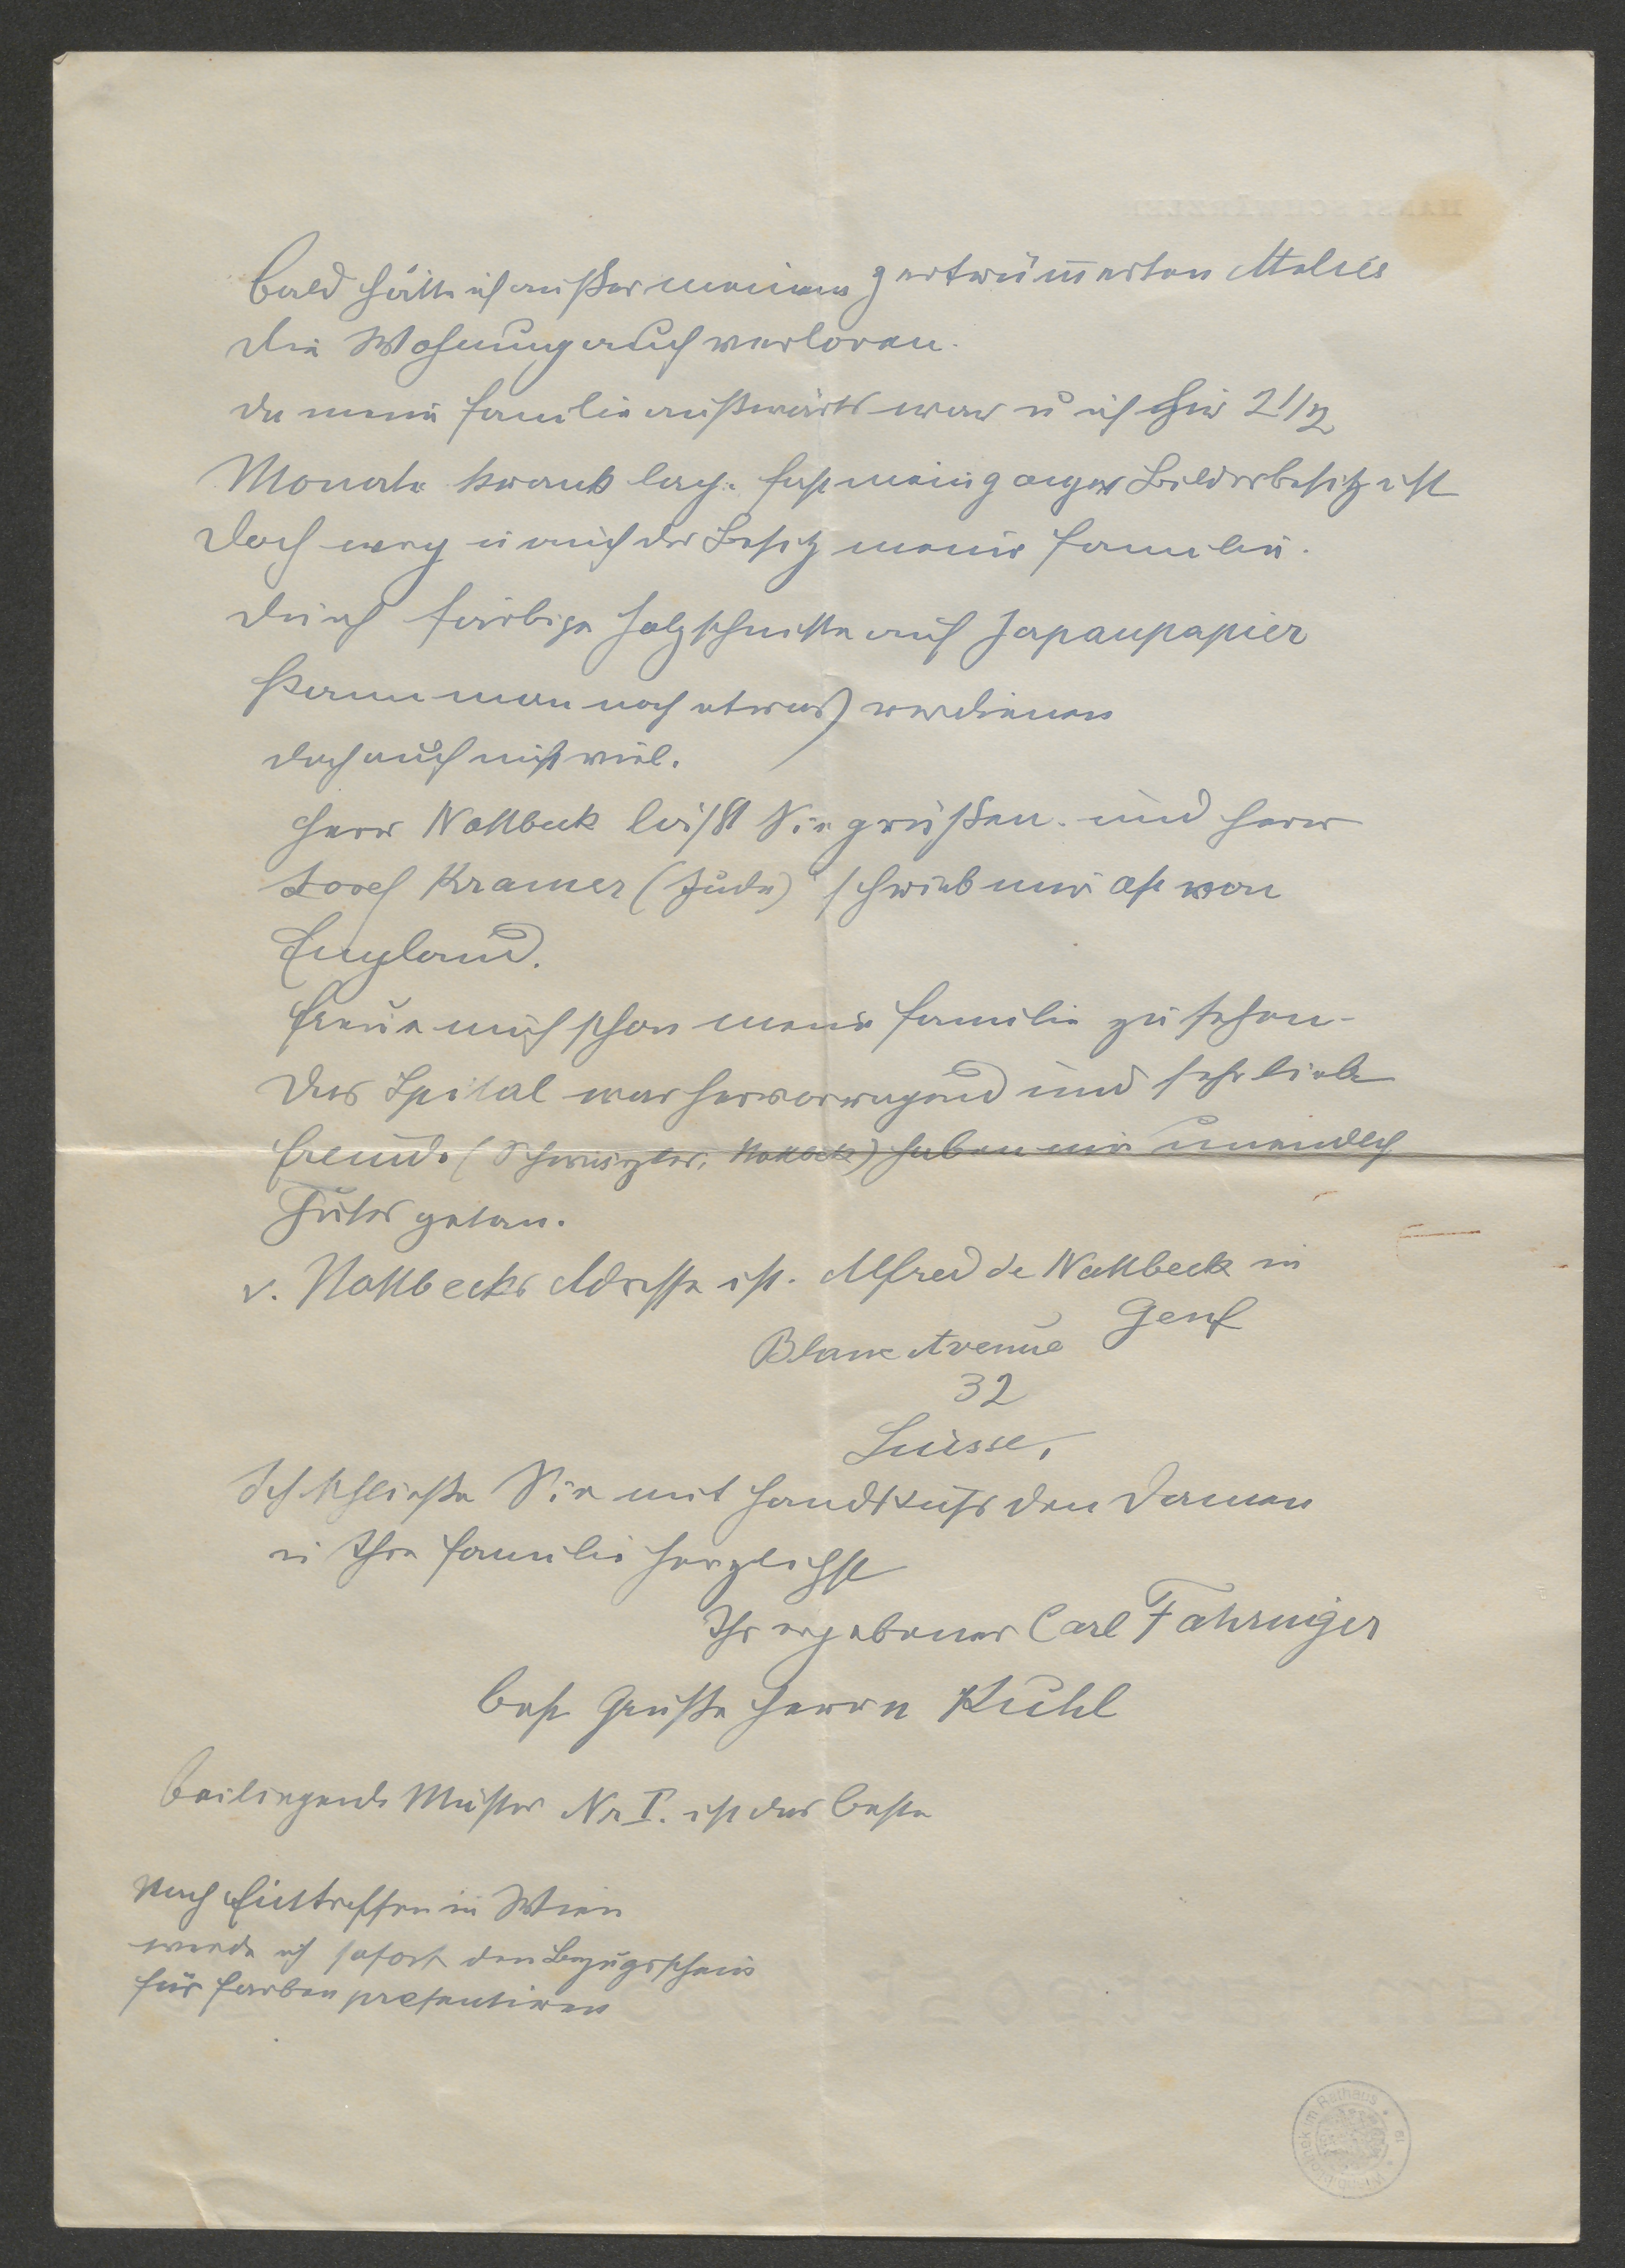 Bald hätte ich außer meinem zertrümmerten Atelier
die Wohnung auch verloren.
da meine Familie auswärts war u ich hier 2 1/2
Monate krank lag. Fast mein ganzer Bilderbesitz ist
doch weg u auch der Besitz meiner Familie.
durch färbige Holzschnitte auf Japanpapier
kann man noch etwas verdienen
doch auch nicht viel.
Herr Nottbeck läßt Sie grüßen. und Herr
Josef Kramer (Jude) schrieb mir oft von
England.
Freue mich schon meine Familie zu sehen.
Das Spital war hervorragend und sehr liebe
Freunde (Schwärzler, Nottbeck) haben mir unendlich
Gutes getan.
v. Nottbecks Adresse ist. Alfred de Nottbeck in
Genf
Blanc Avenue
32
Suisse,
Ich schließe Sie mit Handkuß den Damen
u Ihre Familie herzlichst
Ihr ergebener Carl Fahringer
Beste Grüße Herrn Kuhl
Beiliegende Muster Nr I. ist das beste
Nach Eintreffen in Wien
werde ich sofort den Bezugschein
für Farben praesentieren
im Rathaus